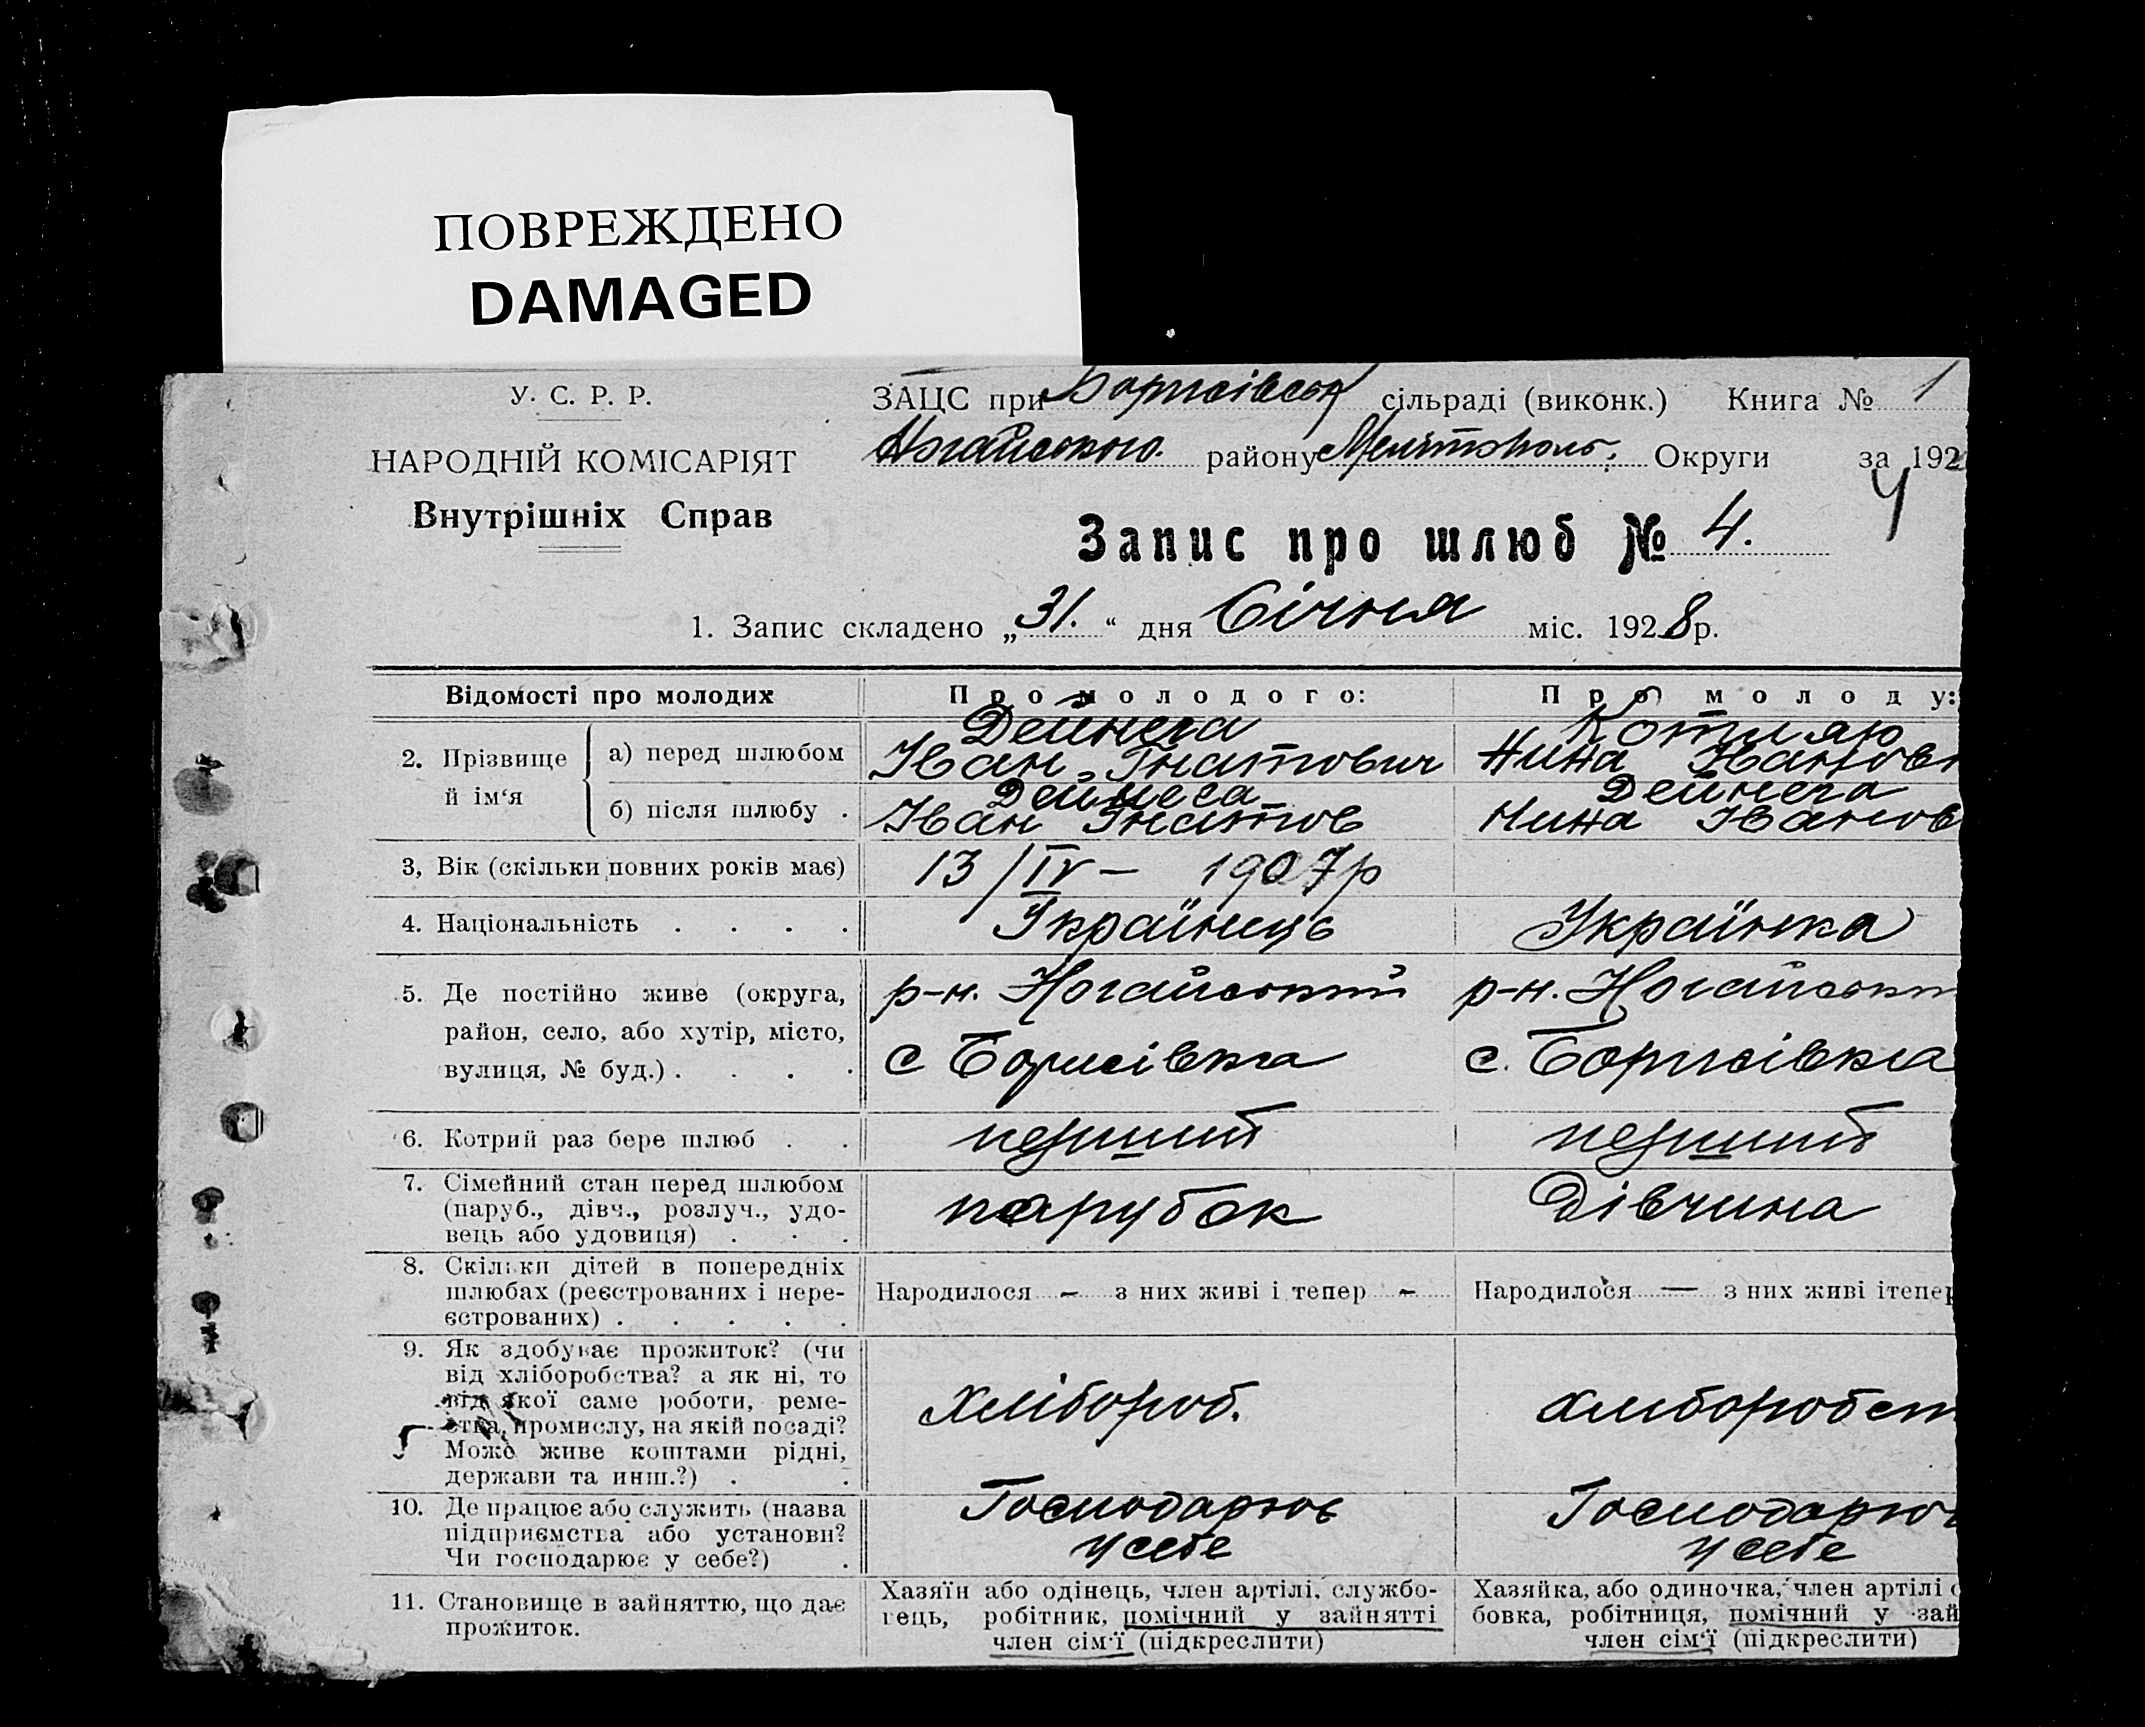 ПОВРЕЖДЕНО
DAMAGED
У. С. Р. Р.
НАРОДНІЙ КОМІСАРІЯТ
Внутрішніх Справ
ЗАЦС при Борисівськ сільраді (виконк.) Книга № 1
Ногайського району Мелітополь. Округи за 192
Запис про шлюб № 4.
1. Запис складено „31.“ дня Січня міс. 1928 р.
Відомості про молодих
Про молодого:
Про молоду:
2. Прізвище й ім‘я
а) перед шлюбом
Дейнега
Іван Гнатович
Котляр
Нина Іванов
б) після шлюбу .
Дейнега
Іван Гнатов
Дейнега
Нина Іванов
3, Вік (скільки повних років має)
13/IV – 1907р
4. Національність . . . .
Українець
Українка
5. Де постійно живе (округа,
район, село, або хутір, місто,
вулиця, № буд.) . . . .
р-н. Ногайський
с Борисівка
р-н. Ногайськи
с. Борисівка
6. Котрий раз бере шлюб . .
перший
перший
7. Сімейний стан перед шлюбом
(паруб., дівч., розлуч., удо-
вець або удовиця) . . .
парубок
Дівчина
8. Скільки дітей в попередніх
шлюбах (реєстрованих і нере-
єстрованих) . . . . .
Народилося - з них живі і тепер -
Народилося — з них живі ітепер
9. Як здобуває прожиток? (чи
від хліборобства? а як ні, то
від якої саме роботи, реме-
ства, промислу, на якій посаді?
Може живе коштами рідні,
держави та инш.?) . .
хлібороб.
хліборобст
10. Де працює або служить (назва
підприємства або установи?
Чи господарює у себе?) .
Господарює
у себе
Господарює
у себе
11. Становище в зайняттю, що дає
прожиток.
Хазяїн або одінець, член артілі, службо-
вець, робітник, помічний у зайнятті
член сім‘ї (підкреслити)
Хазяйка, або одиночка, член артілі с
бовка, робітниця, помічний у зай
член сім‘ї (підкреслити)